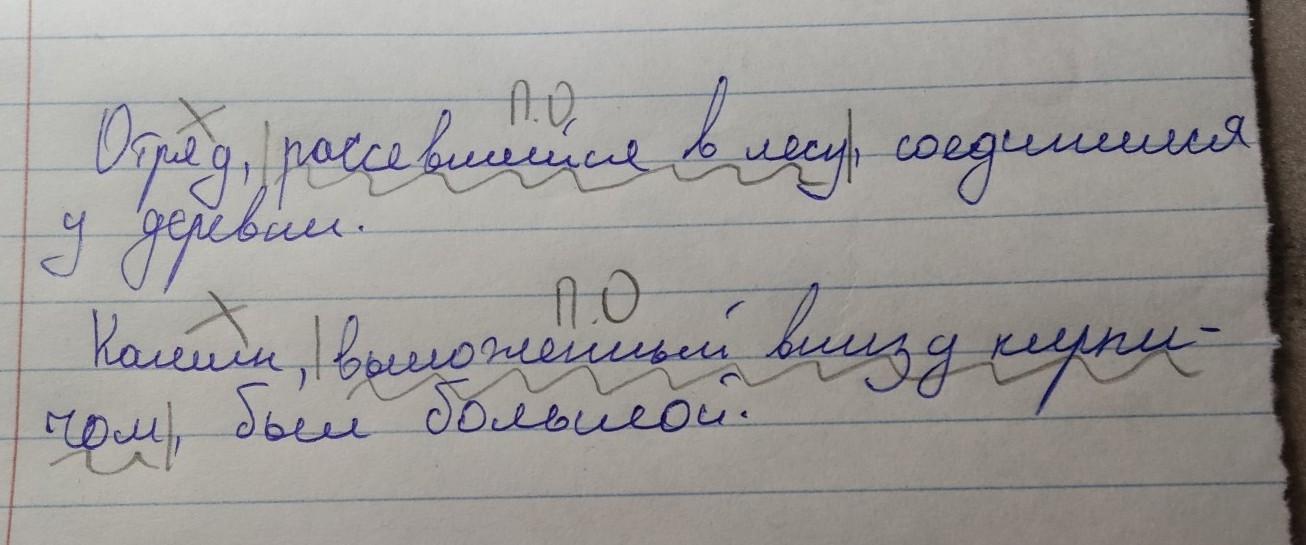 П.О.
Отряд, рассевшийся в лесу, соединился
у деревни.
П.О
Камин, выложенный внизу кирпи-
чом, был большой.